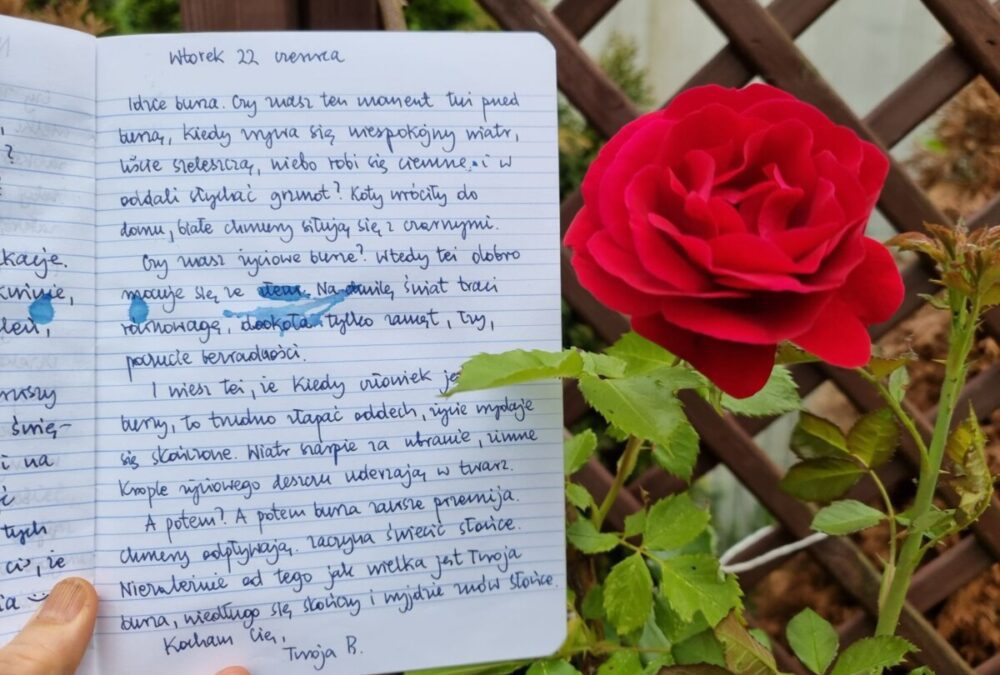 ?
kacje.
świę-
i na
tych
ci, że
Wtorek 22 czerwca
Idzie burza. Czy znasz ten moment tuż przed
burzą, kiedy zrywa się niespokojny wiatr,
liście szeleszczą, niebo robi się ciemne i w
oddali słychać grzmot? Koty wróciły do
domu, białe chmury siłują się z czarnymi.
Czy znasz życiowe burze? Wtedy też dobro
mocuje się ze złem. Na chwilę świat traci
równowagę, dookoła tylko zamęt, łzy,
poczucie bezradności.
I wiesz też, że kiedy człowiek je
burzy, to trudno złapać oddech, życie wydaje
się skończone. Wiatr szarpie za ubranie, zimne
krople życiowego deszczu uderzają w twarz.
A potem? A potem burza zawsze przemija.
Chmury odpływają. Zaczyna świecić słońce.
Niezależnie od tego jak wielka jest Twoja
burza, niedługo się skończy i wyjdzie znów słońce.
Kocham Cię,
Twoja B.